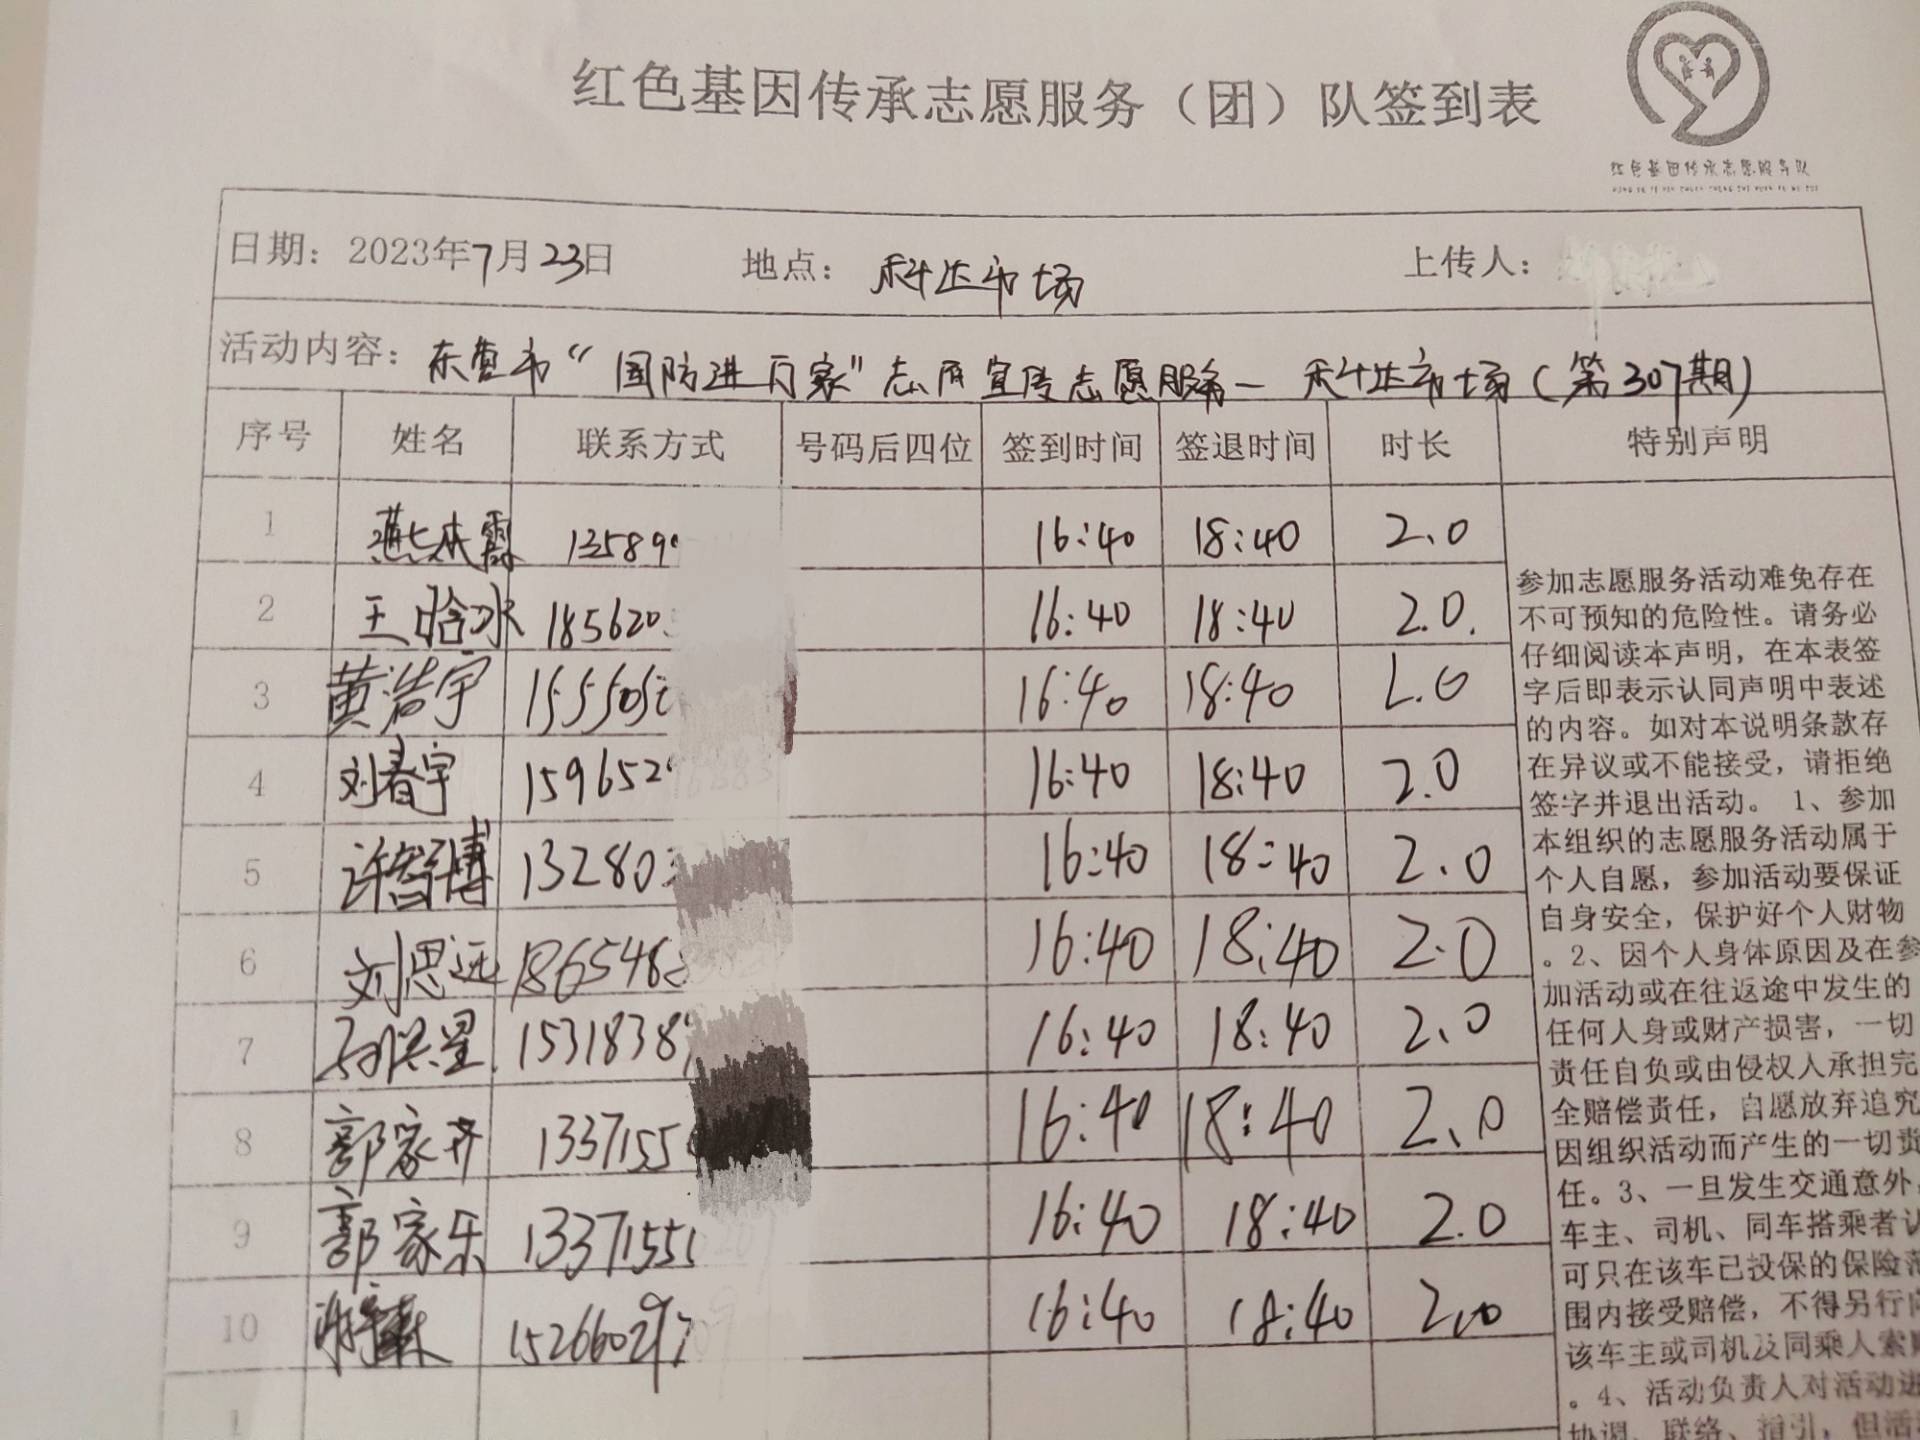 红色基因传承志愿服务（团）队签到表
红色基因传承志愿服务队
日期：2023年7月23日 地点：科达市场 上传人：
活动内容：东营市“国防进万家”志愿宣传志愿服务—科达市场（第307期）
序号 姓名 联系方式 号码后四位 签到时间 签退时间 时长 特别声明
1 燕杰霞 13589 16:40 18:40 2.0
2 王晗冰 185620 16:40 18:40 2.0.
3 黄浩宇 155505 16:40 18:40 2.0
4 刘春宇 1596529 16:40 18:40 2.0
5 许智博 132803 16:40 18:40 2.0
6 刘思远 1865468 16:40 18:40 2.0
7 15318389 16:40 18:40 2.0
8 郭家齐 1337155 16:40 18:40 2.0
9 郭家乐 13371551 16:40 18:40 2.0
10 152660297 16:40 18:40 2.0
1
参加志愿服务活动难免存在
不可预知的危险性。请务必
仔细阅读本声明，在本表签
字后即表示认同声明中表述
的内容。如对本说明条款存
在异议或不能接受，请拒绝
签字并退出活动。 1、参加
本组织的志愿服务活动属于
个人自愿，参加活动要保证
自身安全，保护好个人财物
。2、因个人身体原因及在参
加活动或在往返途中发生的
任何人身或财产损害，一切
责任自负或由侵权人承担完
全赔偿责任，自愿放弃追究
因组织活动而产生的一切责
任。3、一旦发生交通意外，
车主、司机、同车搭乘者认
可只在该车已投保的保险范
围内接受赔偿，不得另行向
该车主或司机及同乘人索赔
。4、活动负责人对活动进
协调、联络、指引，但活